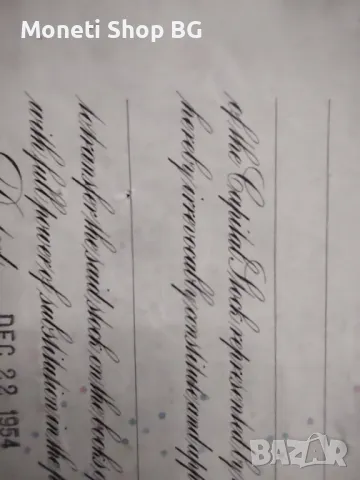 Moneti Shop BG
of the Capital Stock represented by
hereby irrevocably constitute and app
to transfer the said stock on the books
with full power of substitution in the p
Dated DEC 22 1954
BAZAR